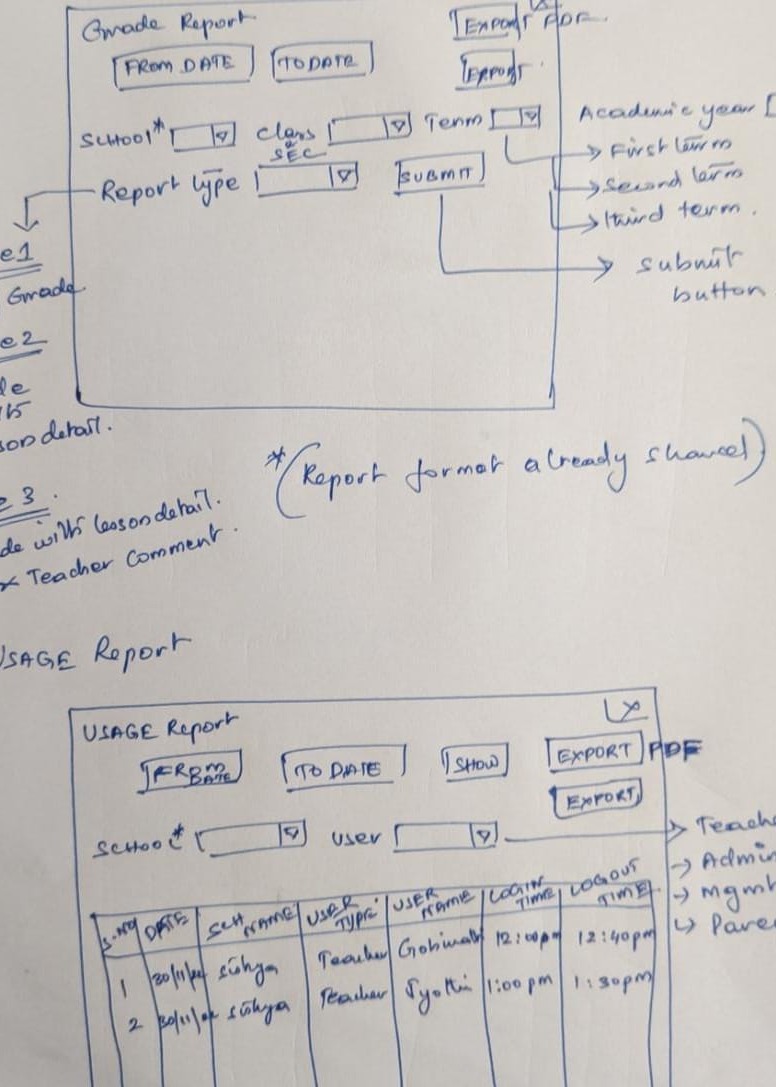 Grade Report
EXPORT PDF
FROM DATE TO DATE EXPORT
SCHOOL* Class & SEC Term Academic year [
First term
Second term
third term.
Report type SUBMIT
submit button
e1
Grade
e2
le
son detail.
*(Report format already shared)
e 3.
de with lesson detail.
Teacher Comment.
USAGE Report
USAGE Report X
FROM DATE TO DATE SHOW EXPORT PDF
EXPORT
SCHOOL* User Teache
Admin
Mgmt
Pare
S.NO DATE SCH NAME USER TYPE USER NAME LOGIN TIME LOGOUT TIME
1 30/11/ Teacher 12:00pm 12:40pm
2 30/11/ Teacher Jyothi 1:00 pm 1:30pm